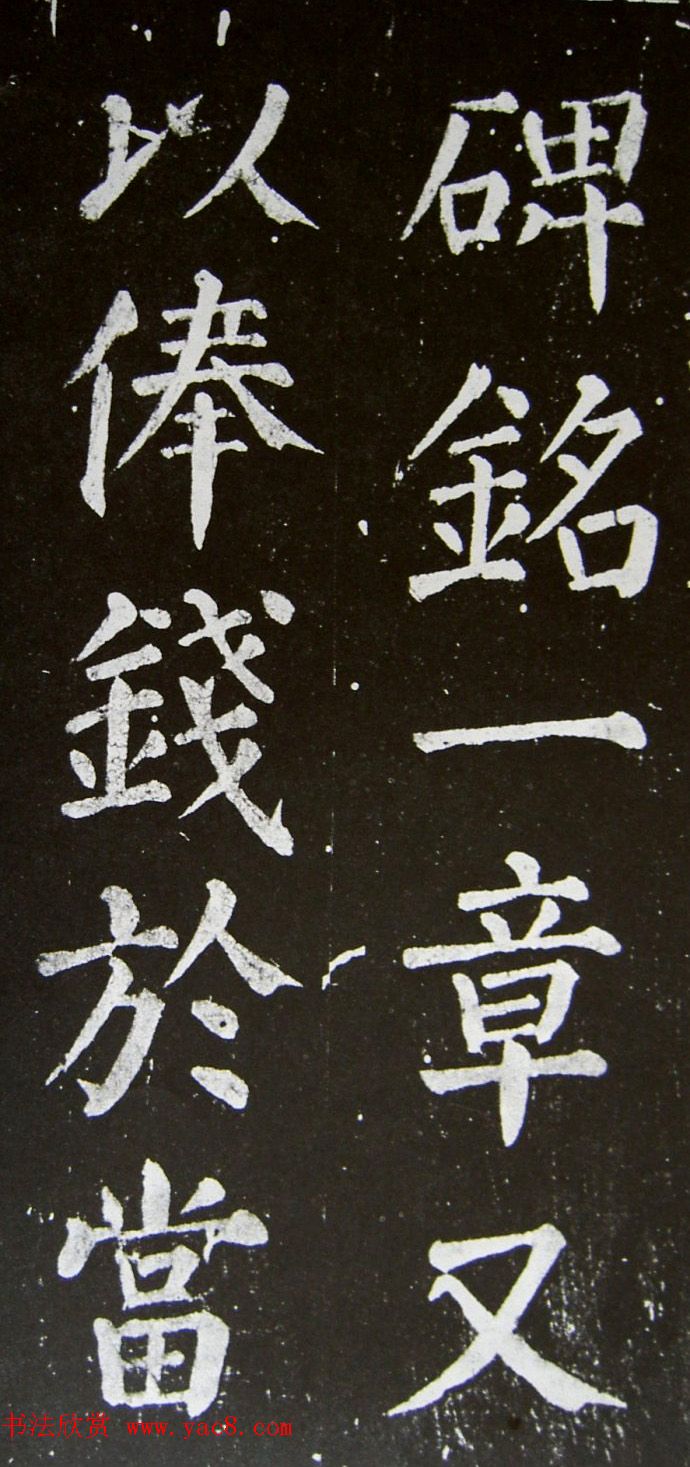 碑銘一章又
以俸錢於當
书法欣赏 www.yac8.com